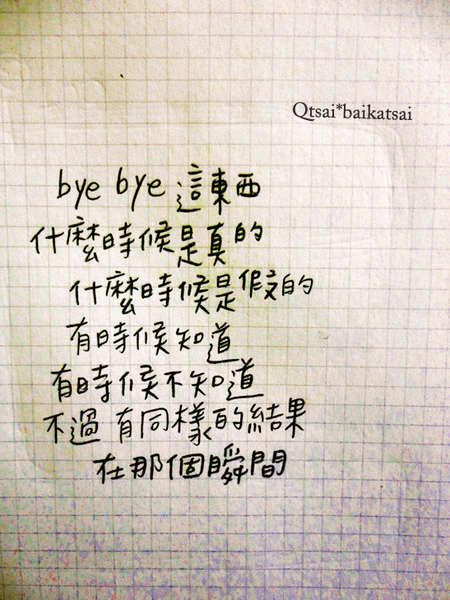 Qtsai*baikatsai
bye bye 這東西
什麼時候是真的
什麼時候是假的
有時候知道
有時候不知道
不過有同樣的結果
在那個瞬間